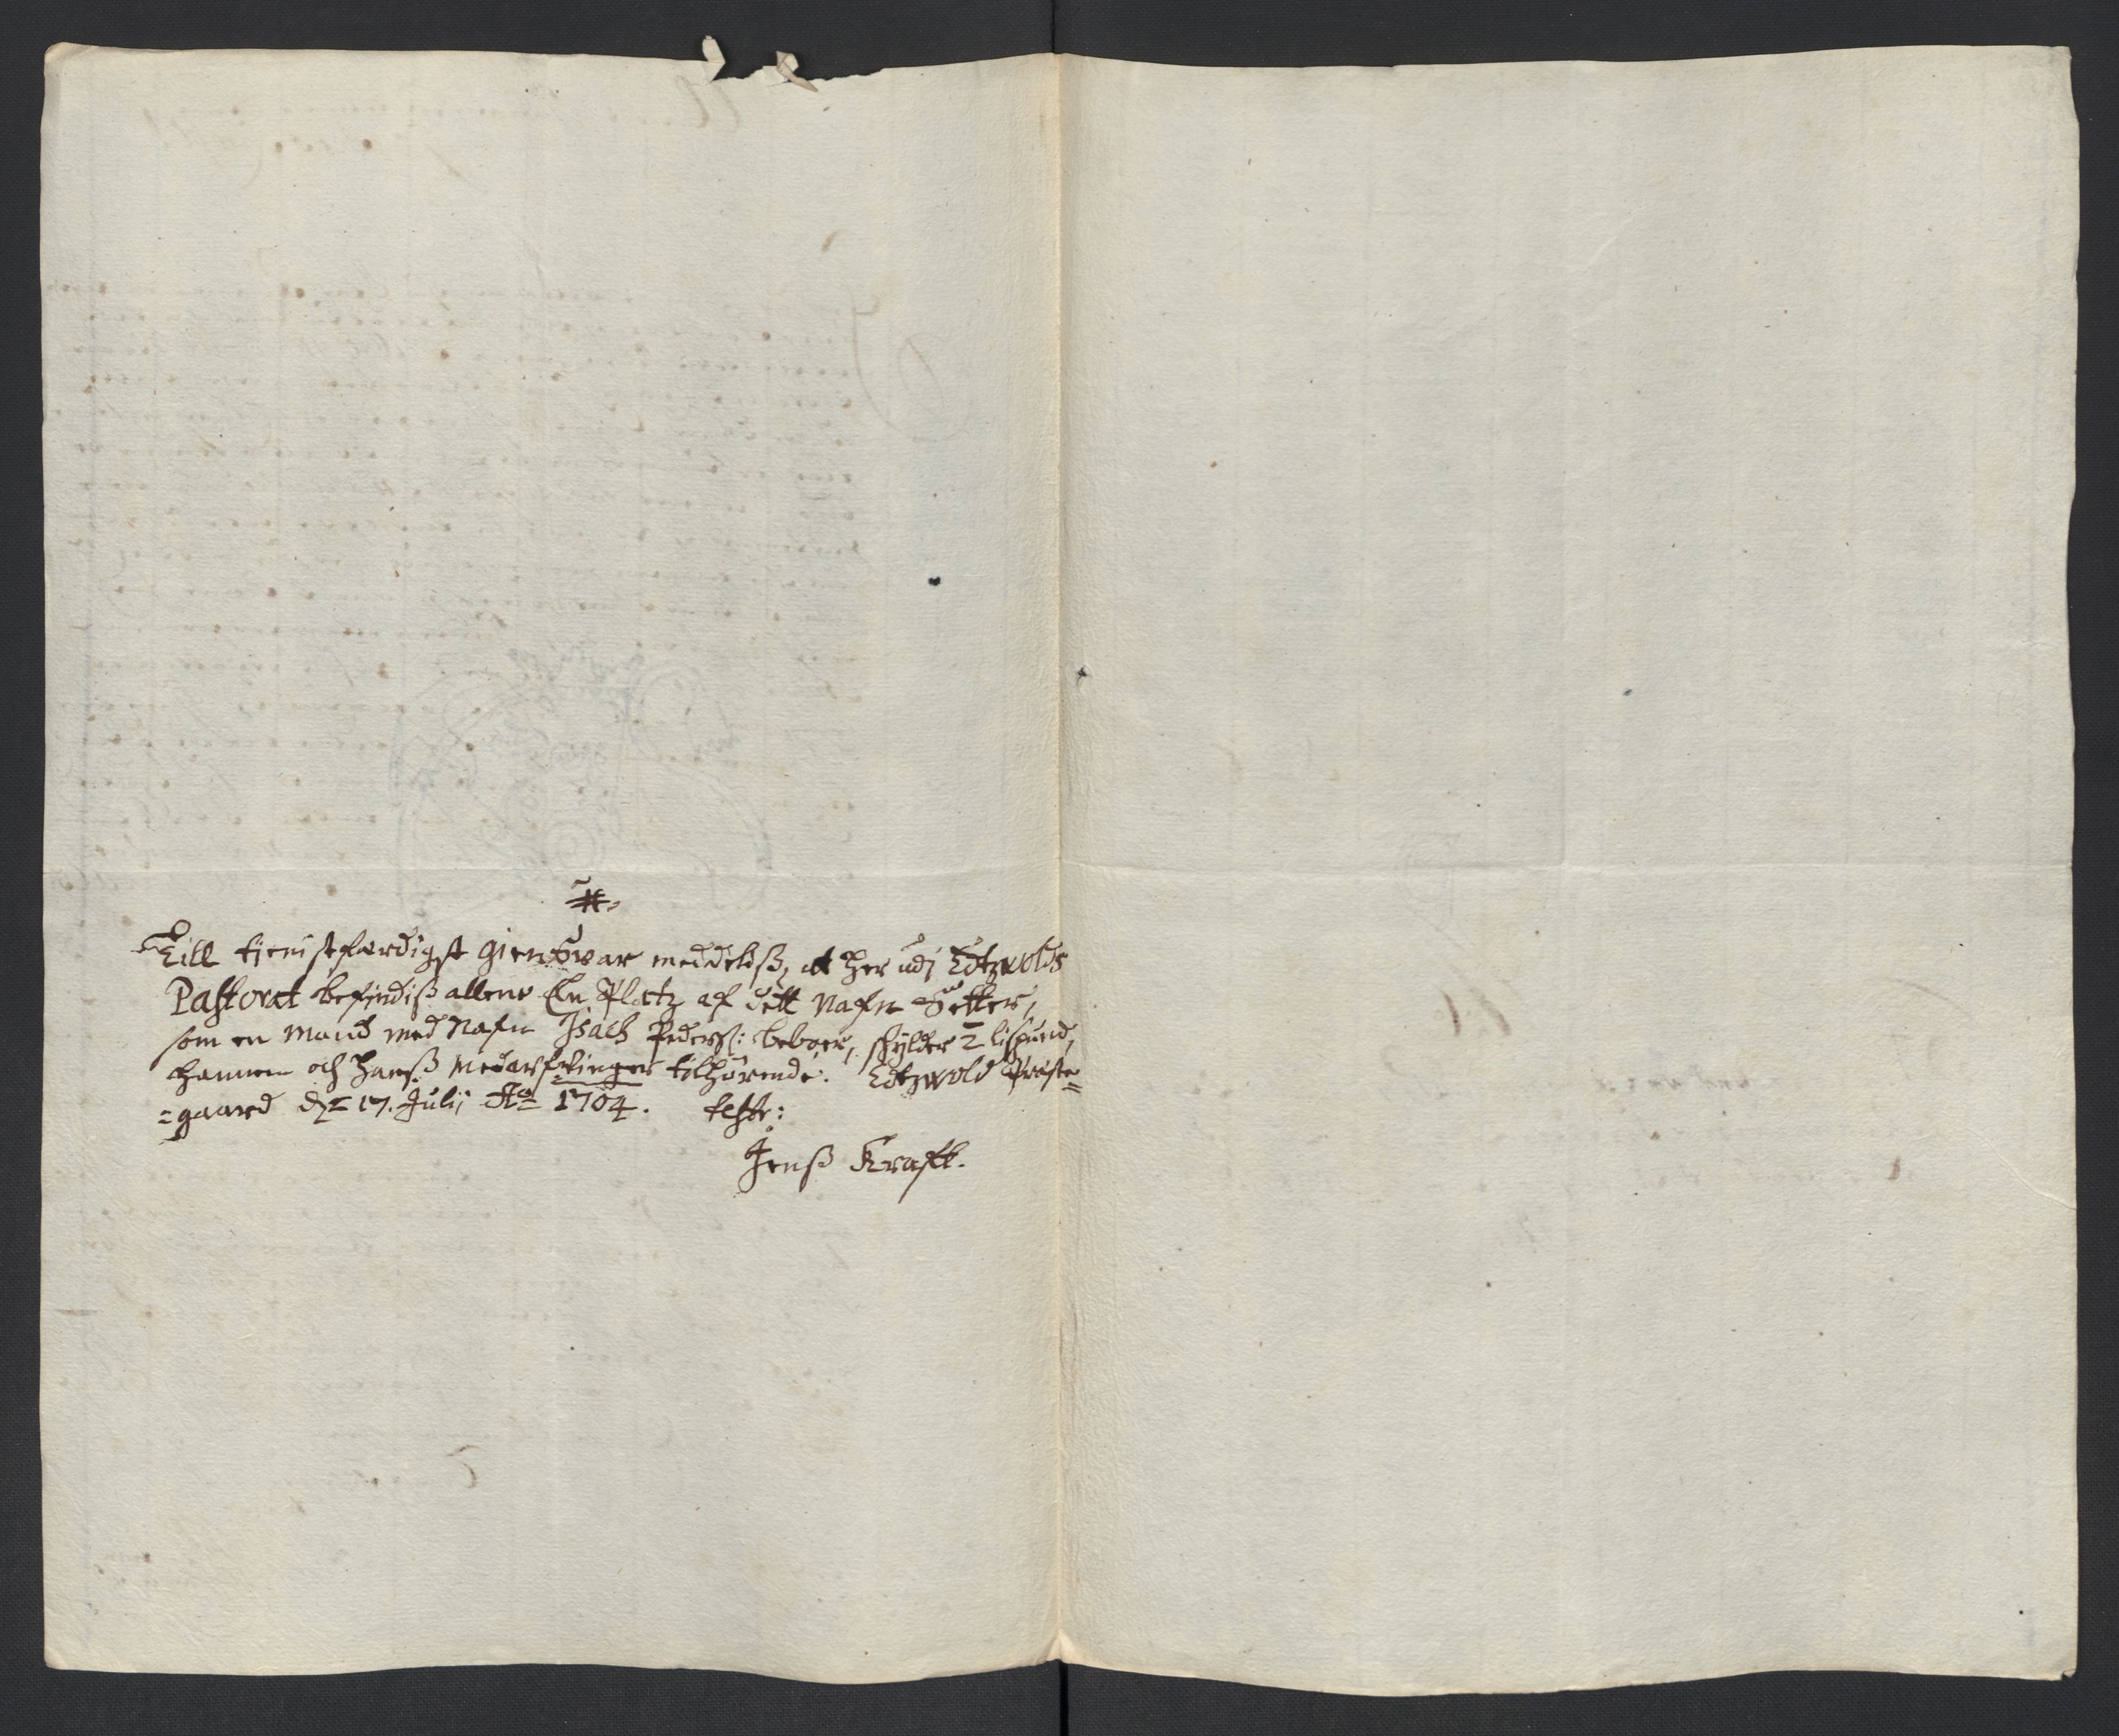 Till tienistfærdigst giensvar meddelis, at her udj Edtzvolds
Pastorat befindis allene En Platz af dett Nafn Setter,
som en Mand med Nafn Isach Peders: beboer, skylder 2 lispund,
hannem och hans medarfvinger tilhørende. Edtzvold Præste=
=gaard d: 17. Julij Ao 1704. teste:
Jens Kraft.